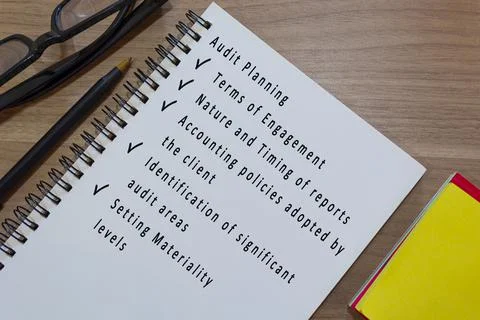 Audit Planning
✓ Terms of Engagement
✓ Nature and Timing of reports
✓ Accounting policies adopted by
the client
✓ Identification of significant
audit areas
✓ Setting Materiality
levels